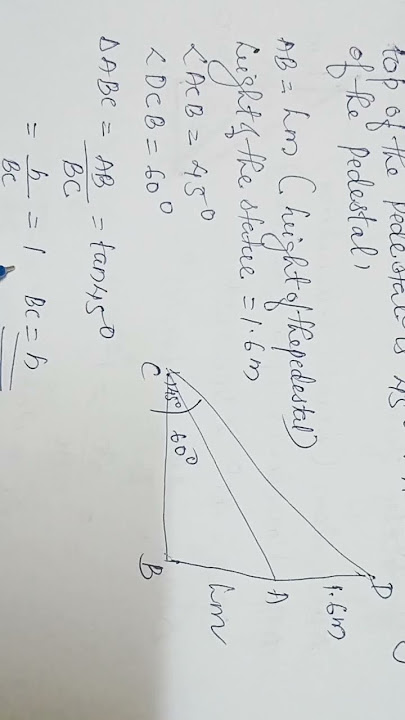 top of the pedestal is 45°
of the pedestal)
AB = hm (height of the pedestal)
height of the statue = 1.6m
∠ACB = 45°
∠DCB = 60°
ΔABC = AB/BC = tan45°
= h/BC = 1 BC = h
C 45° 60°
B
hm
A
1.6m
D